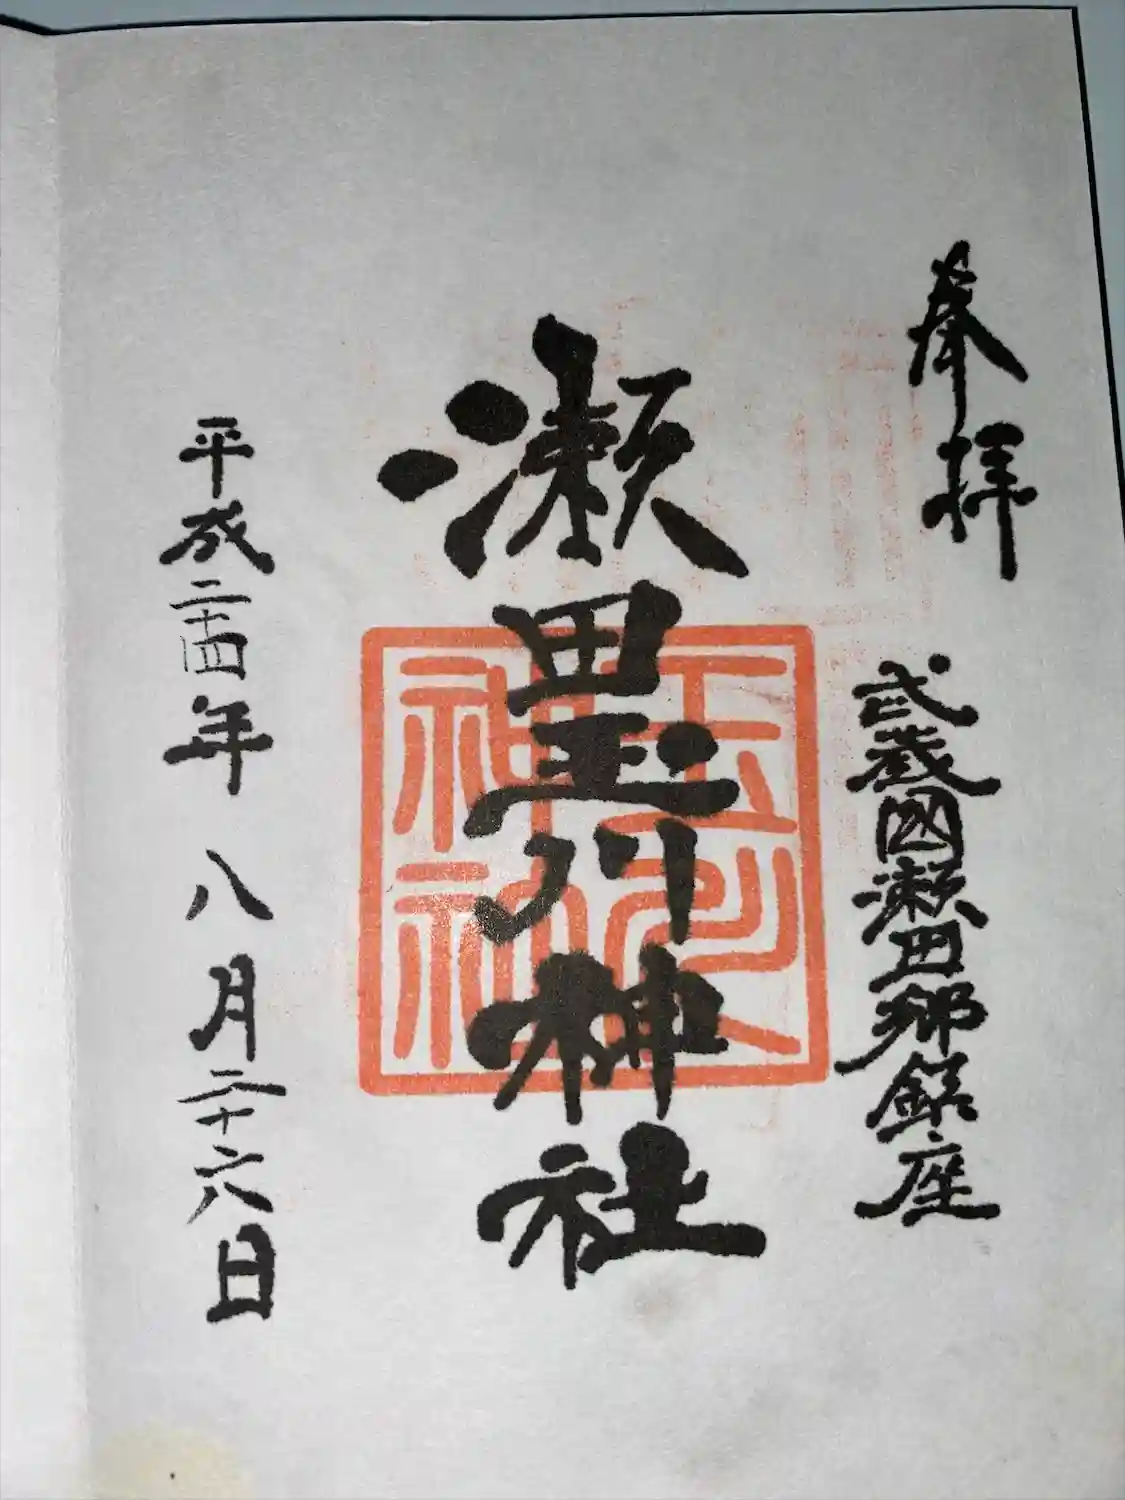 奉拝
武蔵國瀬田郷鎮座
瀬田玉川神社
玉川神社
平成二十四年八月二十六日